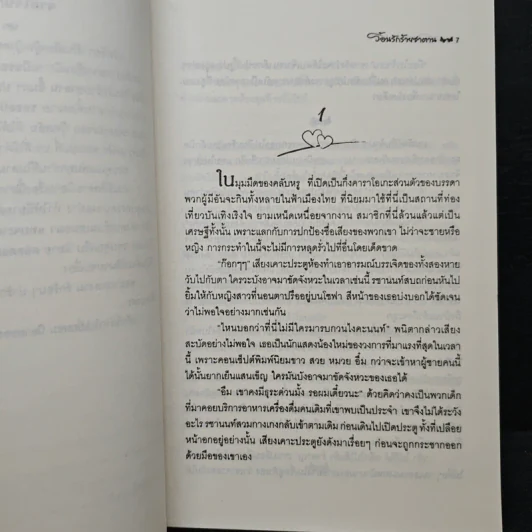 ร้อนรักร้ายซาตาน ๒๙ 7
1
ในมุมมืดของคลับหรู ที่เปิดเป็นกึ่งคาราโอเกะส่วนตัวของบรรดา
พวกผู้มีอันจะกินทั้งหลายในฟ้าเมืองไทย ที่นิยมมาใช้ที่นี่เป็นสถานที่ท่อง
เที่ยวบันเทิงเริงใจ ยามเหน็ดเหนื่อยจากงาน สมาชิกที่นี่ล้วนแล้วแต่เป็น
เศรษฐีทั้งนั้น เพราะแลกกับการปกป้องชื่อเสียงของพวกเขา ไม่ว่าจะชายหรือ
หญิง การกระทำในนี้จะไม่มีการหลุดรั่วไปที่อื่นโดยเด็ดขาด
"ก๊อกๆๆ" เสียงเคาะประตูห้องทำเอาอารมณ์บรรเจิดของทั้งสองหาย
วับไปกับตา ใครวะบังอาจมาขัดจังหวะในเวลาเช่นนี้ รชานนท์สบถก่อนหันไป
ยิ้มให้กับหญิงสาวที่นอนตาปรืออยู่บนโซฟา สีหน้าของเธอบ่งบอกได้ชัดเจน
ว่าไม่พอใจอย่างมากเช่นกัน
"ไหนบอกว่าที่นี่ไม่มีใครมารบกวนไงคะนนท์" พนิตากล่าวเสียง
สะบัดอย่างไม่พอใจ เธอเป็นนักแสดงน้องใหม่ของวงการที่มาแรงที่สุดในเวลา
นี้ เพราะคอนเซ็ปต์พิมพ์นิยมขาว สวย หมวย อึ๋ม กว่าจะเข้าหาผู้ชายคนนี้
ได้นั้นยากเย็นแสนเข็ญ ใครมันบังอาจมาขัดจังหวะของเธอได้
"อืม เขาคงมีธุระด่วนมั้ง รอผมเดี๋ยวนะ" ด้วยคิดว่าคงเป็นพวกเด็ก
ที่มาคอยบริการอาหารเครื่องดื่มคนเดิมที่เขาพบเป็นประจำ เขาจึงไม่ได้ระวัง
อะไร รชานนท์สวมกางเกงกลับเข้าตามเดิม ก่อนเดินไปเปิดประตู ทั้งที่เปลือย
หน้าอกอยู่อย่างนั้น เสียงเคาะประตูยังดังมาเรื่อยๆ ก่อนจะถูกกระชากออก
ด้วยมือของเขาเอง